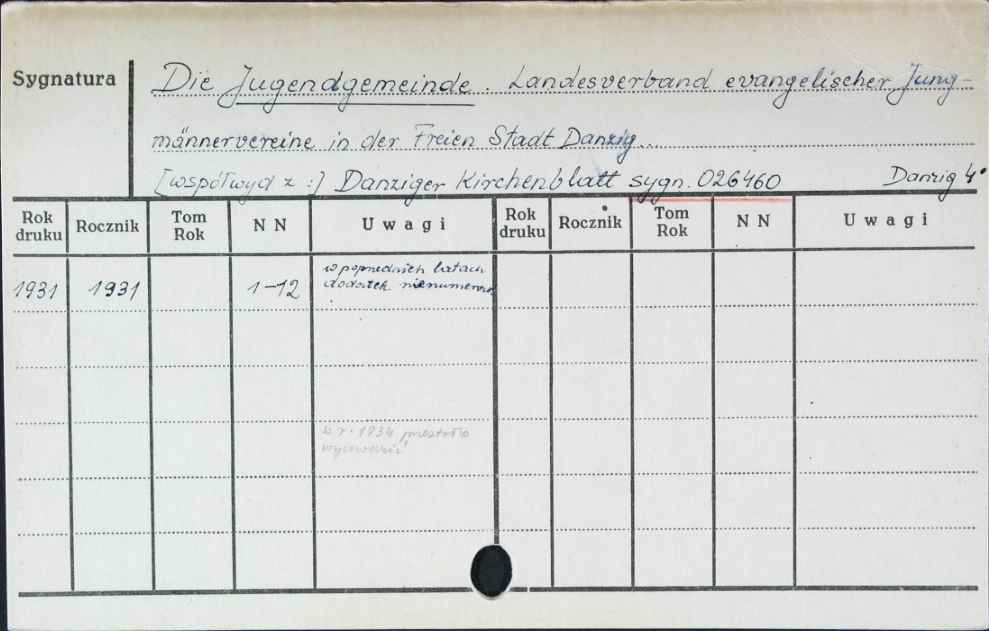 Sygnatura
Die Jugendgemeinde. Landesverband evangelischer Jung-
männervereine in der Freien Stadt Danzig.
[współwyd z :] Danziger Kirchenblatt sygn. 026460 Danzig 4°
Rok druku Rocznik Tom Rok N N Uwagi Rok druku Rocznik Tom Rok N N Uwagi
w poprzednich latach
1931 1931 1-12 dodatek nienumerow
w r. 1934 przestało
wychodzić